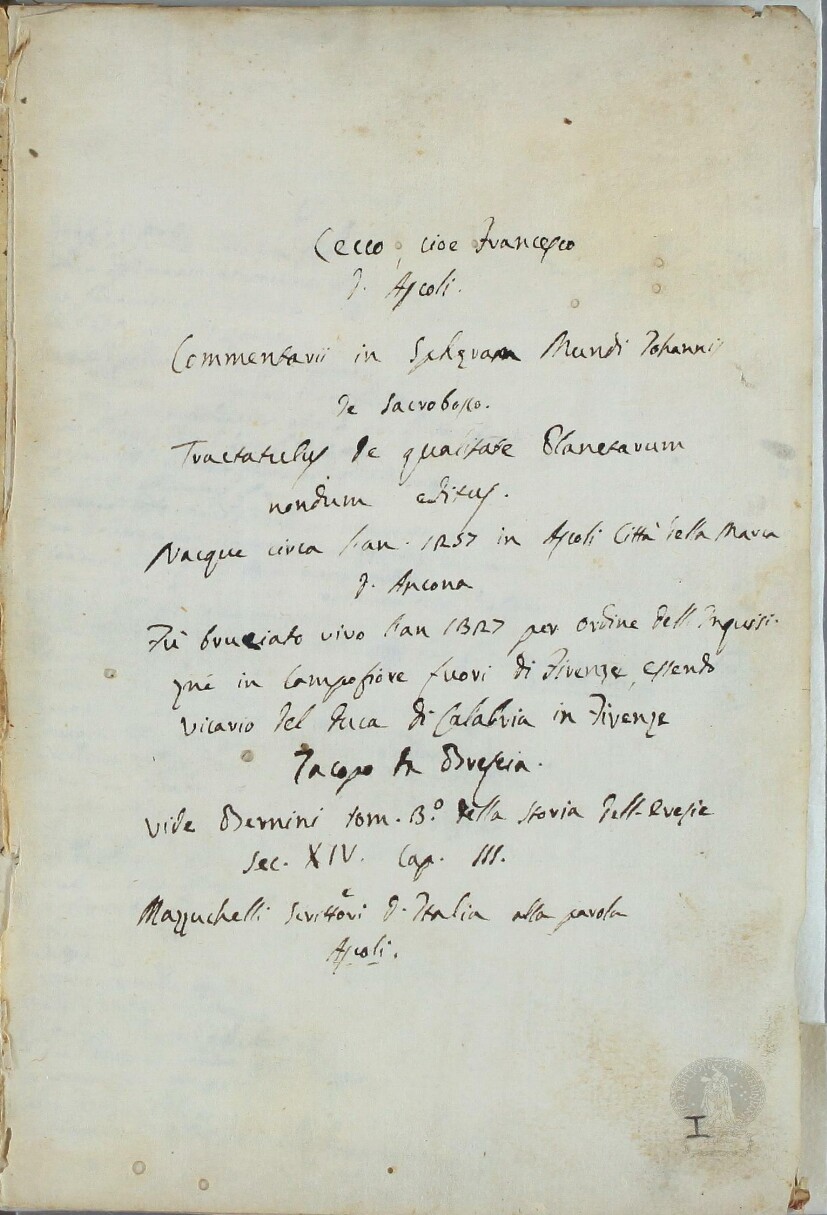 Cecco, cioe Francesco
d'Ascoli.
Commentarii in Spheram Mundi Johannis
de Sacrobosco.
Tractatulus de qualitate Planetarum
nondum editus.
Nacque circa l'an. 1257 in Ascoli Città della Marca
d'Ancona
Fù bruciato vivo l'an 1327 per ordine dell'Inquisi-
zne in Campofiore fuori di Firenze, essendo
vicario del Duca di Calabria in Firenze
Jacopo da Brescia.
Vide Bernini tom. 3.o della storia dell'eresie
sec. XIV. Cap. III.
Mazzuchelli scrittori d'Italia alla parola
Ascoli.
I